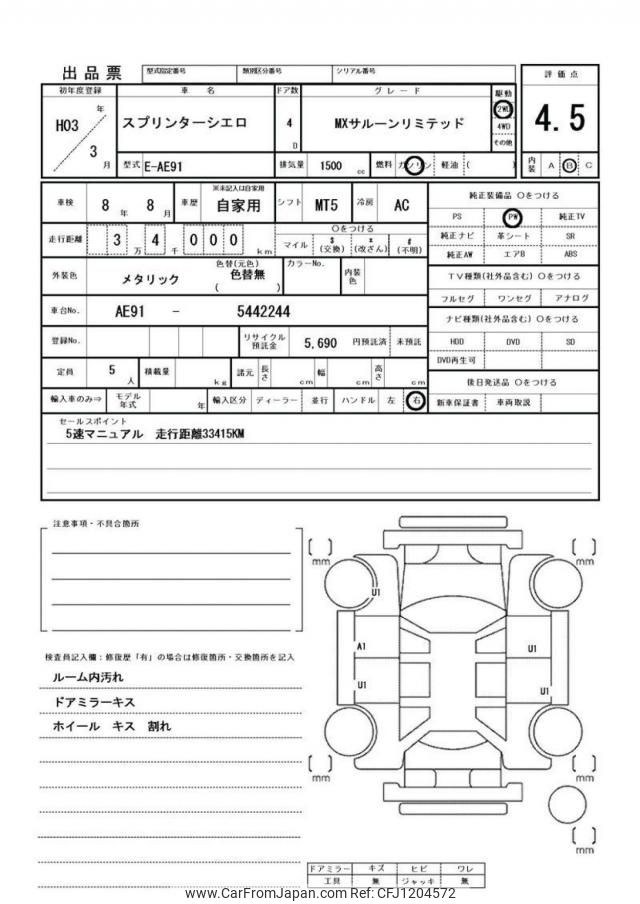 出品票 型式指定番号 類別区分番号 シリアル番号
初年度登録 車名 ドア数 グレード 駆動 評価点
H03 年 3 月 スプリンターシエロ 4 D MXサルーンリミテッド 2WD 4WD その他 4.5
型式 E-AE91 排気量 1500 cc 燃料 ガソリン 軽油 ( ) 内装 A B C
車検 8 年 8 月 車歴 ※未記入は自家用 自家用 シフト MT5 冷房 AC
走行距離 3 万 4 千 0 0 0 km ○をつける マイル $ (交換) * (改ざん) # (不明)
外装色 メタリック 色替(元色) 色替無 ( ) カラーNo. 内装色
車台No. AE91 - 5442244
登録No. リサイクル預託金 5,690 円預託済 未預託
定員 5 人 積載量 kg 諸元 長さ cm 幅 cm 高さ cm
輸入車のみ⇒ モデル年式 年 輸入区分 ディーラー 並行 ハンドル 左 右
純正装備品 ○をつける
PS PW 純正TV
純正ナビ 革シート SR
純正AW エアB ABS
TV種類(社外品含む) ○をつける
フルセグ ワンセグ アナログ
ナビ種類(社外品含む) ○をつける
HDD DVD SD
DVD再生可
後日発送品 ○をつける
新車保証書 車両取説
セールスポイント
5速マニュアル 走行距離33415KM
注意事項・不具合箇所
検査員記入欄：修復歴「有」の場合は修復箇所・交換箇所を記入
ルーム内汚れ
ドアミラーキス
ホイール キス 割れ
[ ] mm [ ] mm
U1
A1 U1
U1 U1
[ ] mm [ ] mm
[ ] mm
ドアミラー キズ ヒビ ワレ
工具 無 ジャッキ 無
www.CarFromJapan.com Ref No: CFJ1204572